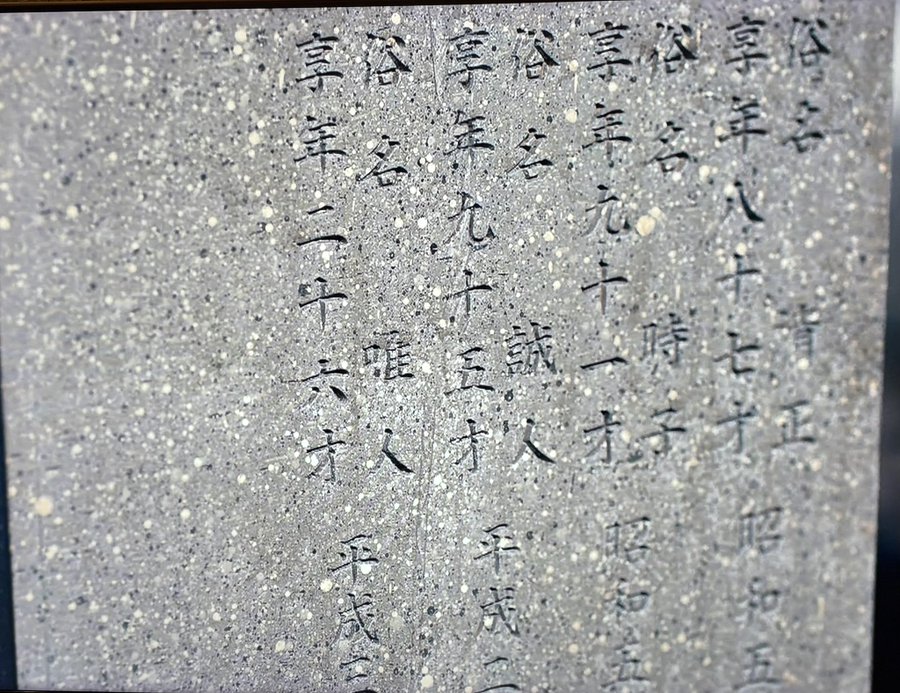 俗名 肯正
享年八十七才 昭和五
俗名 時子
享年九十一才 昭和五
俗名 誠人
享年九十三才 平成二
俗名 唯人
享年二十六才 平成二